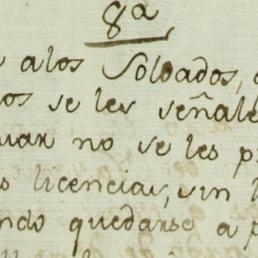 8ª
alos Soldados,
os se les señale
uar no se les p
s licencias, sin
ndo quedarse a p